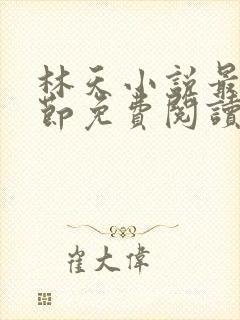 林天小說最
節免費閱讀
崔大偉